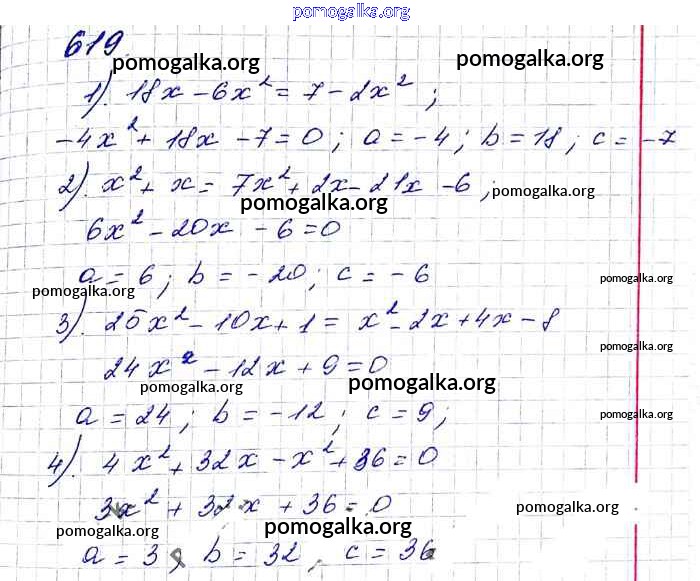 pomogalka.org
619
pomogalka.org pomogalka.org
1). 18x - 6x² = 7 - 2x² ;
-4x² + 18x - 7 = 0 ; a = -4 ; b = 18 ; c = -7
2). x² + x = 7x² + 2x - 21x - 6 ;
pomogalka.org pomogalka.org
6x² - 20x - 6 = 0
a = 6 ; b = -20 ; c = -6
pomogalka.org pomogalka.org pomogalka.org
3). 25x² - 10x + 1 = x² - 2x + 4x - 8
pomogalka.org pomogalka.org
24x² - 12x + 9 = 0
pomogalka.org pomogalka.org
a = 24 ; b = -12 ; c = 9 ;
pomogalka.org
4). 4x² + 32x - x² + 36 = 0
pomogalka.org
3x² + 32x + 36 = 0
pomogalka.org pomogalka.org pomogalka.org
a = 3 ; b = 32 ; c = 36